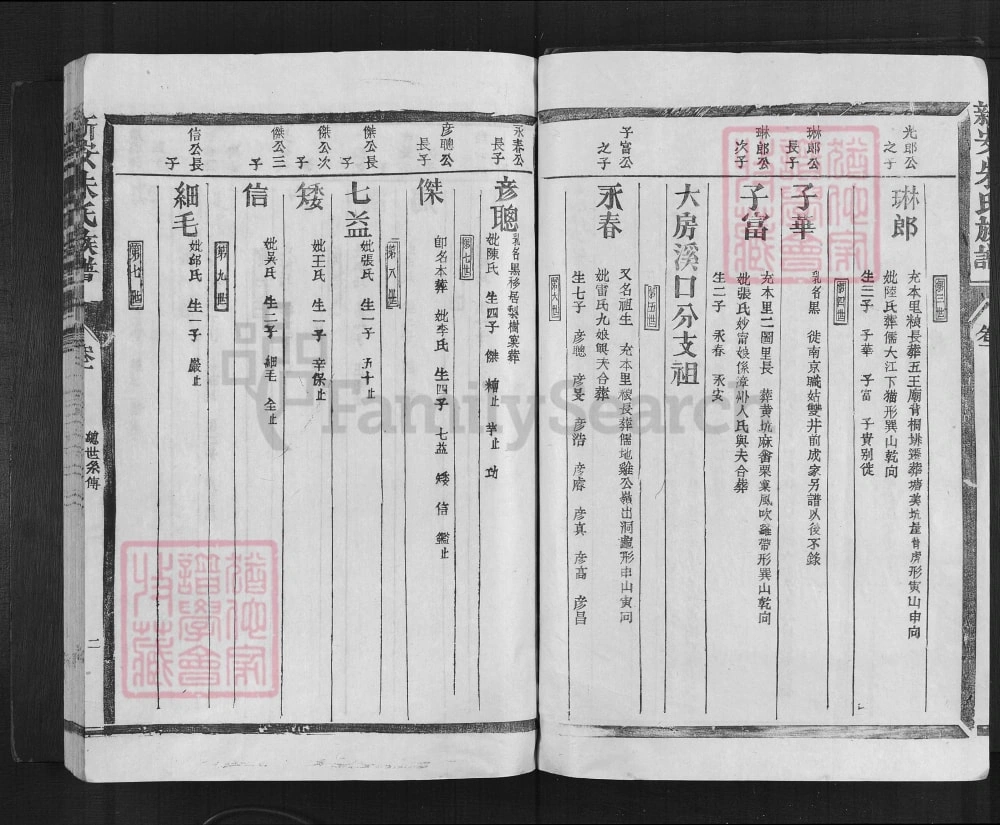 新安朱氏族譜
第三世
光郎公之子
琳郎
充本里稅長葬五王廟背桐排遷葬塘美坑崖背虎形寅山申向
妣陸氏葬儒大江下猫形巽山乾向
生三子 子華 子富 子貴別徙
第四世
琳郎公長子
子華
乳名黑 徙南京職姑雙井前成家另譜以後不錄
琳郎公次子
子富
充本里二圖里長 葬黃坑麻畬栗窠風吹羅帶形巽山乾向
妣張氏妙富娘係漳州人氏與夫合葬
生二子 永春 永安
第五世
大房溪口分支祖
子富公之子
永春
又名祖生 充本里稅長葬儒地雞公嶺出洞龍形申山寅向
妣雷氏九娘與夫合葬
生七子 彥聰 彥旻 彥浩 彥睿 彥真 彥高 彥昌
第六世
永春公長子
彥聰
乳名黑移居梨樹窠葬
妣陳氏 生四子 傑 止 止 功
第七世
彥聰公長子
傑
即名本葬 妣李氏 生四子 七益 矮 信 鑑止
第八世
傑公長子
七益
妣張氏 生一子 五十止
傑公次子
矮
妣王氏 生一子 辛保止
傑公三子
信
妣吳氏 生二子 細毛 全止
第九世
信公長子
細毛
妣邱氏 生一子 嚴止
第七世
新安朱氏族譜
卷一
總世系傳
二
FamilySearch